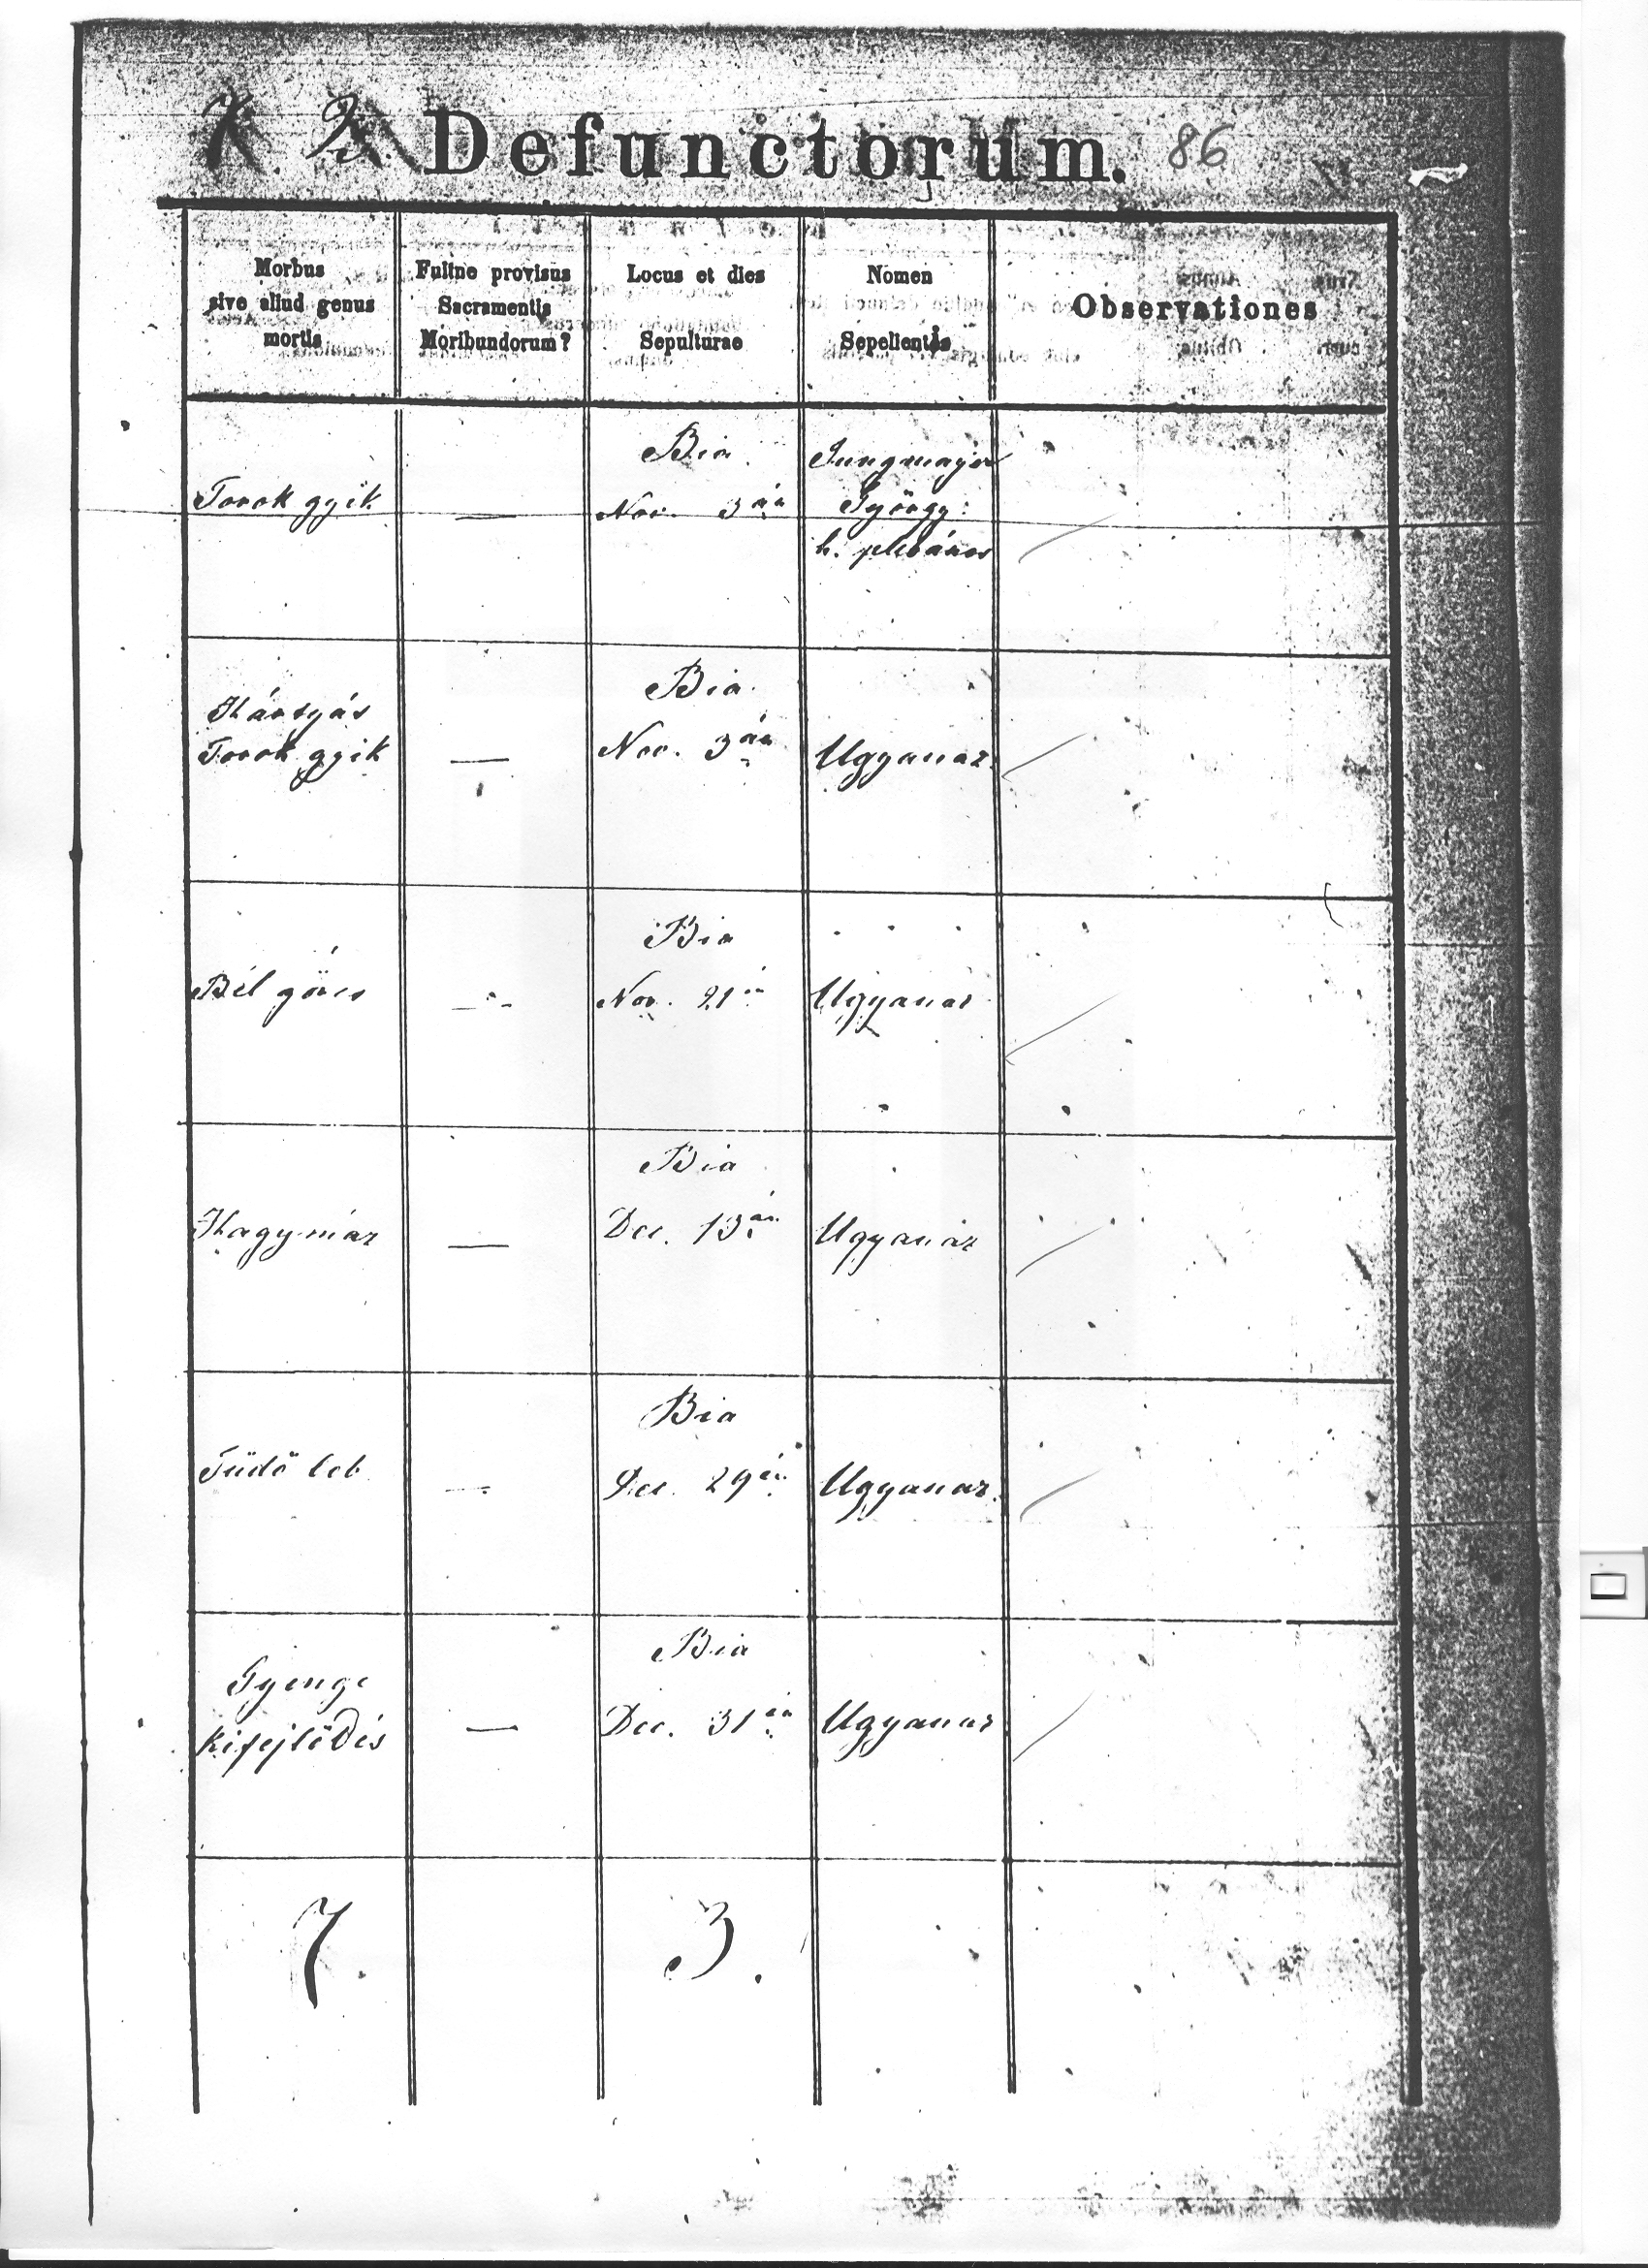 Defunctorum. 86
Morbus
sive aliud genus
mortis
Fuitne provisus
Sacramentis
Moribundorum?
Locus et dies
Sepulturae
Nomen
Sepelientis
Observationes
Torok gyik
—
Bia
Nov. 3án
Jungmayer
György
h. plebános
Torok gyik
—
Bia
Nov. 3án
Ugyanaz
Bél görcs
—
Bia
Nov. 21én
Ugyanaz
Hagymáz
—
Bia
Dec. 13án
Ugyanaz
Tüdő lob
—
Bia
Dec. 29én
Ugyanaz
Gyenge
kifejlődés
—
Bia
Dec. 31én
Ugyanaz
7.
3.